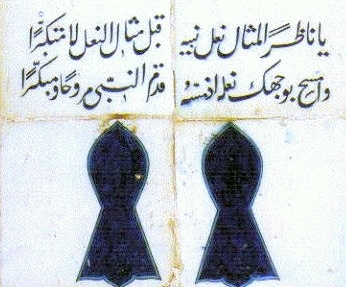 يا ناظرًا لمثال نعل نبيه قبل مثال النعل لا متكبرًا
وامسح بوجهك نعله اذ مسه قدم النبي مروحا ومبكرًا